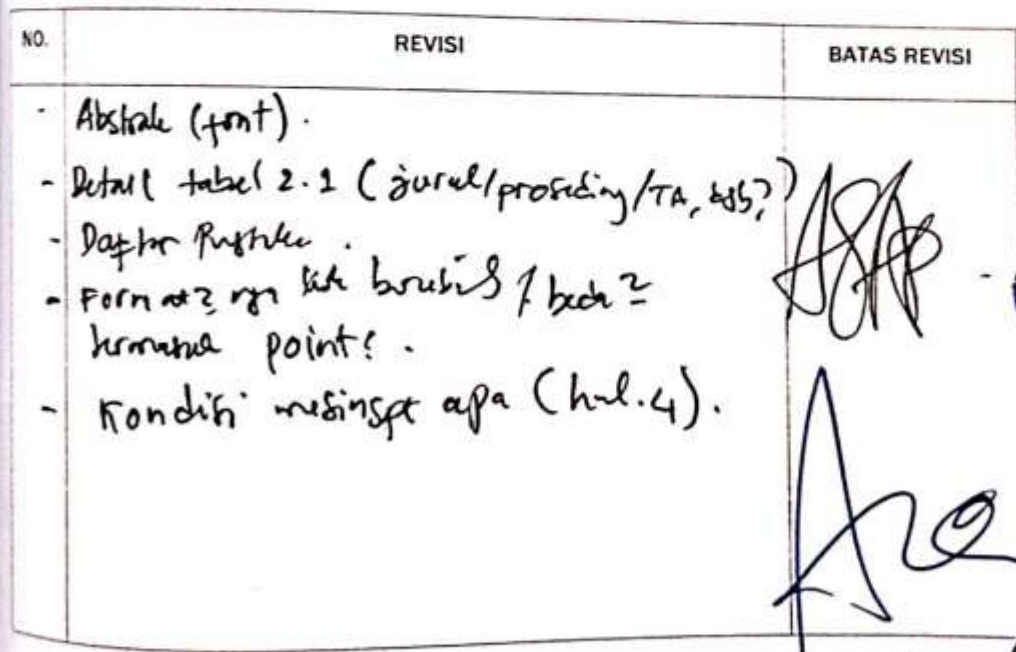 NO. REVISI BATAS REVISI
- Abstrak (font).
- Detail tabel 2.1 (jurnal/prosiding/TA, dsb?)
- Daftar Pustaka.
- Format2 ygn beda2
termasuk point2.
- Kondisi apa (hal.4).